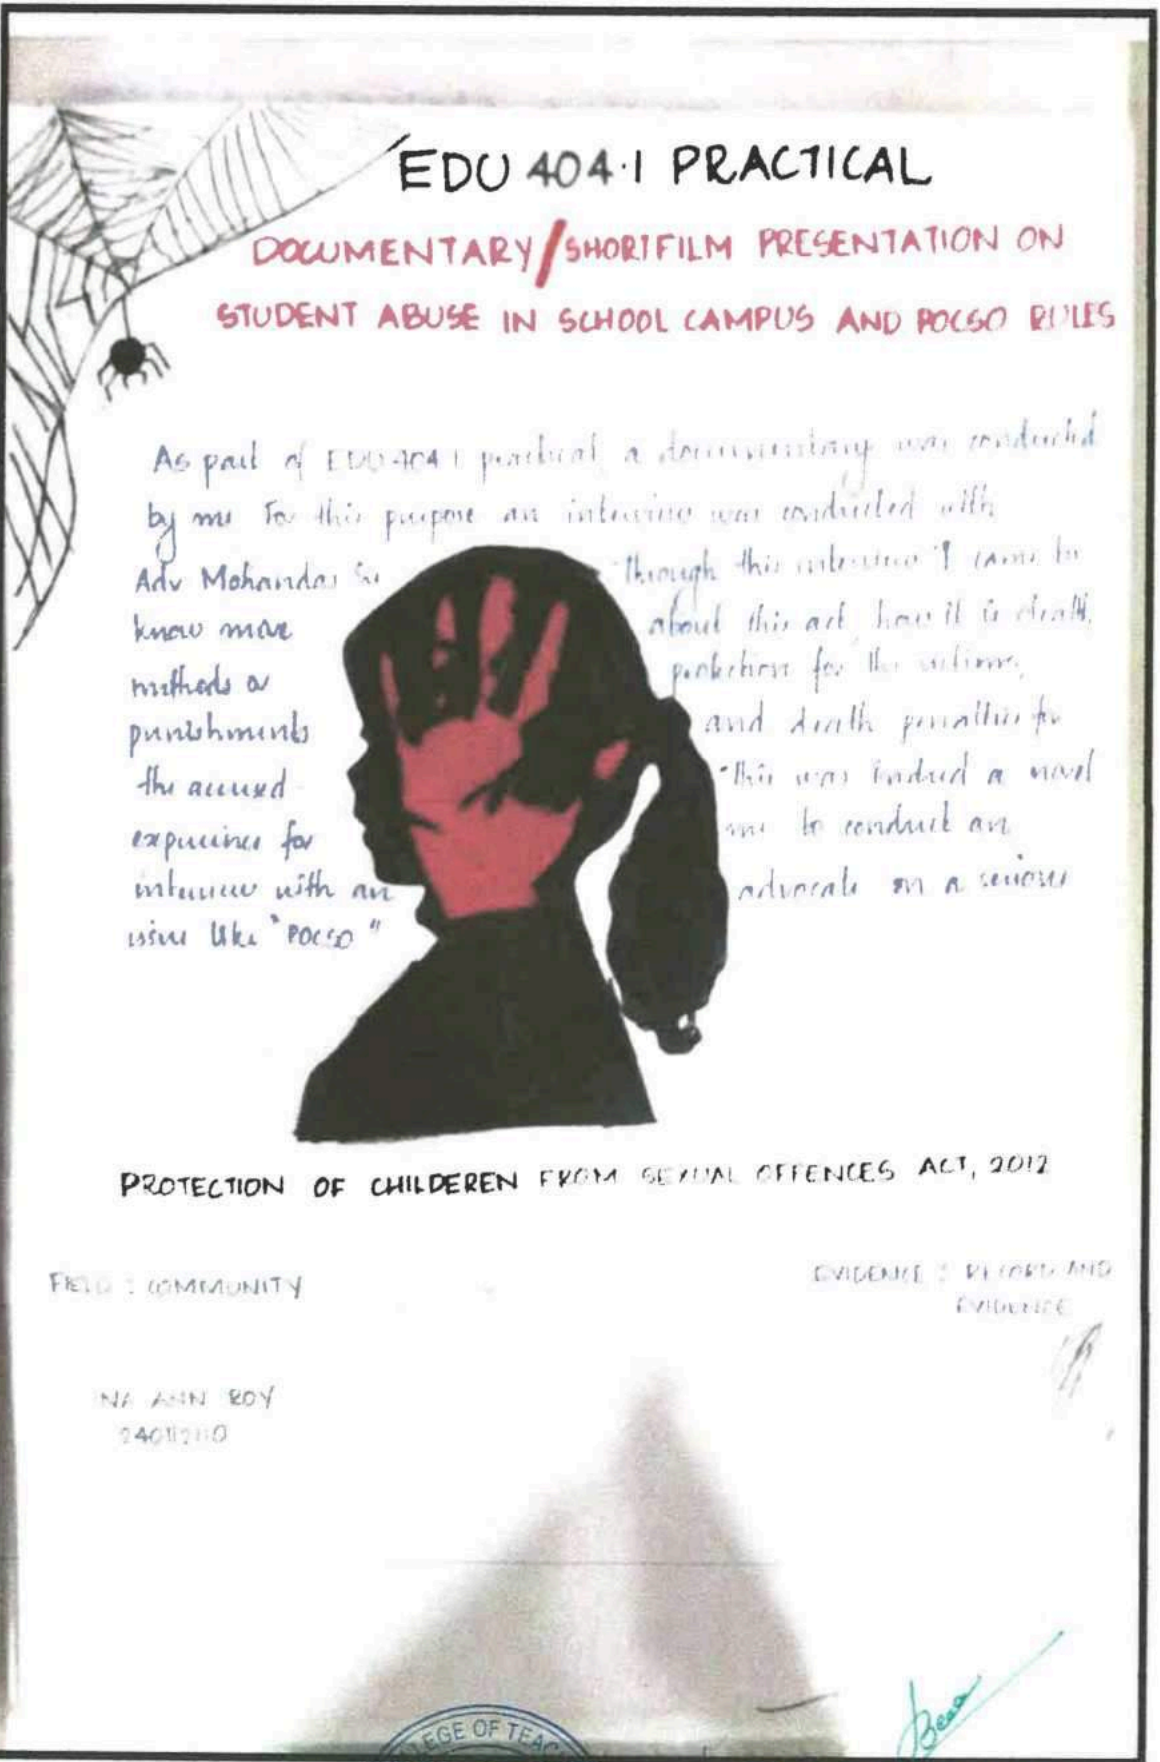 EDU 404.1 PRACTICAL
DOCUMENTARY/SHORTFILM PRESENTATION ON
STUDENT ABUSE IN SCHOOL CAMPUS AND POCSO RULES
As part of EDU 404.1 practical a documentary was conducted
by me For this purpose an interview was conducted with
Adv Mohandas Sir Through this interview I came to
know more about this act, how it is dealt,
methods or protection for the victims,
punishments and death penalties for
the accused This was indeed a novel
experience for me to conduct an
interview with an advocate on a serious
issue like "POCSO"
PROTECTION OF CHILDEREN FROM SEXUAL OFFENCES ACT, 2012
FIELD : COMMUNITY
EVIDENCE : RECORD AND
EVIDENCE
NA ANN ROY
EGE OF TEAC
Beena